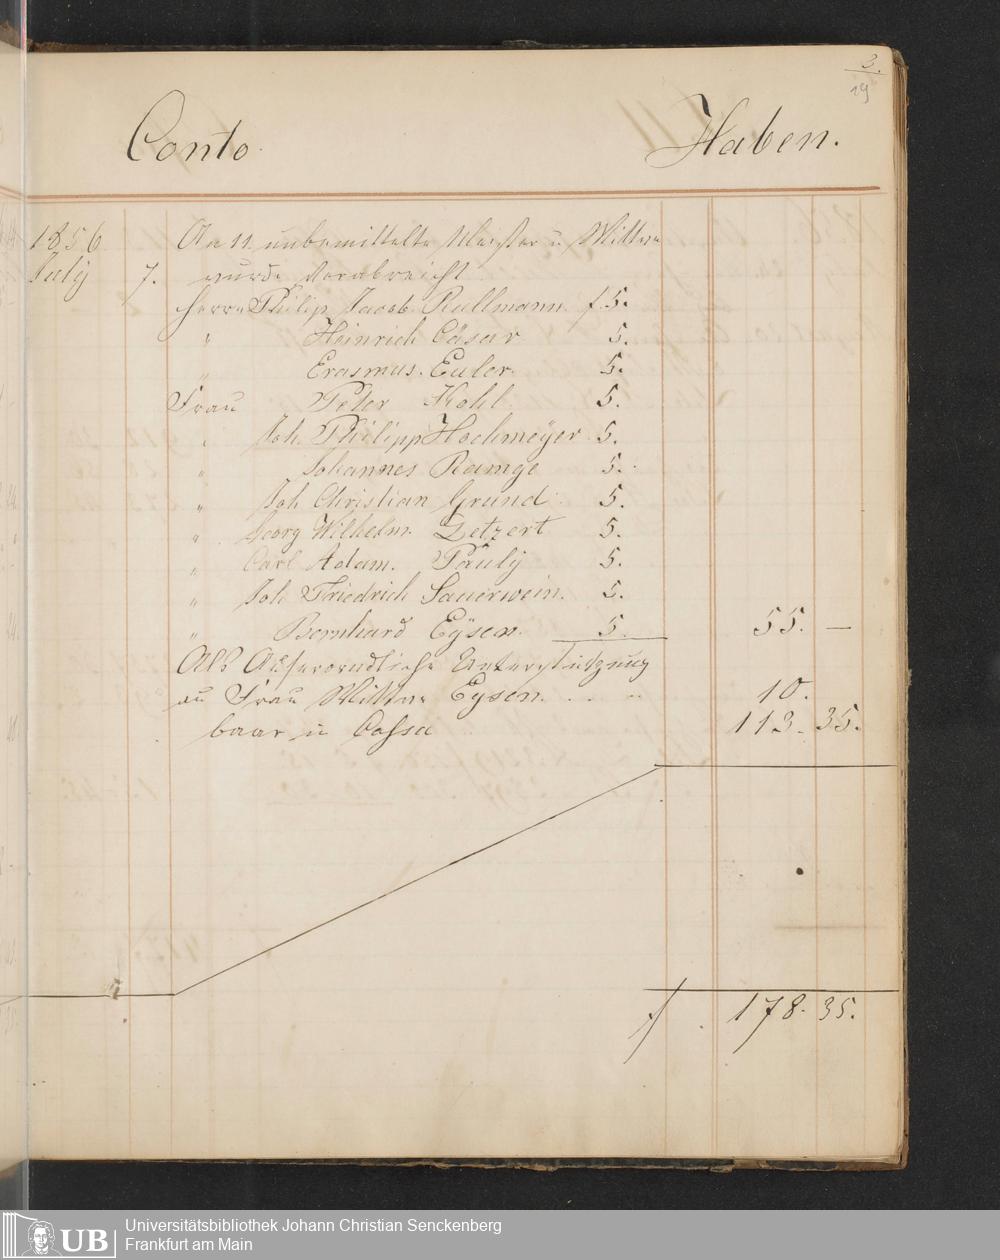 3.
19
Conto
Haben.
1856. An 11. unbemittelte Meister u. Wittwe
July 7. wurde verabreicht
Herrn Philip Jacob Rullmann f 5.
" Heinrich Cäsar 5.
" Erasmus. Euler. 5.
Frau Peter Kohl 5.
" Joh. Philipp Hochmeÿer 5.
" Johannes Ramge 5.
" Joh Christian Grund 5.
" Georg Wilhelm. Getzert 5.
" Carl Adam. Paulÿ 5.
" Joh Friedrich Sauerwein. 5.
" Bernhard Eÿsen. 5. 55. —
Als Außerordtliche Unterstützung
an Frau Wittwe Eysen. 10.
baar in Cassa 113. 35.
f 178. 35.
UB
Universitätsbibliothek Johann Christian Senckenberg
Frankfurt am Main